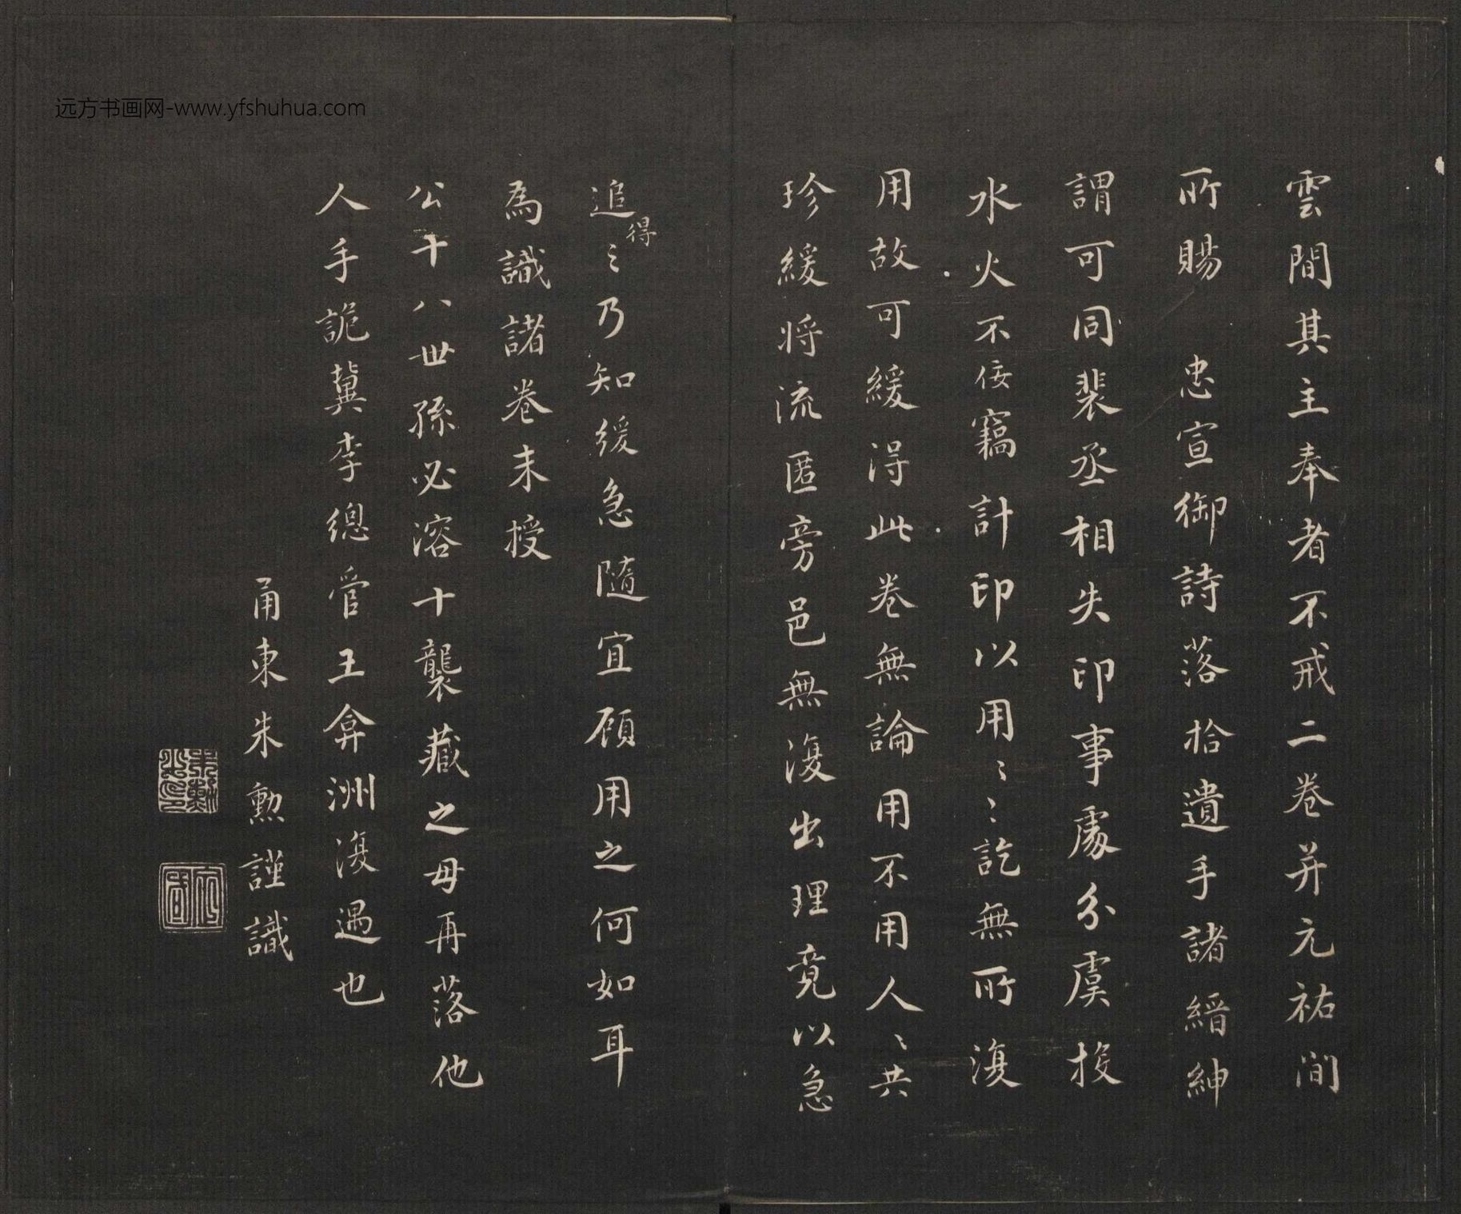 远方书画网-www.yfshuhua.com
雲間其主奉者不戒二卷并元祐間
所賜 忠宣御詩落拾遺手諸縉紳
謂可同裴丞相失印事處分虞投
水火不佞竊計印以用〻〻訖無所復
用故可緩得此卷無論用不用人〻共
珍緩將流匿旁邑無復出理竟以急
追得〻乃知緩急隨宜顧用之何如耳
為識諸卷末授
公十八世孫必溶十襲藏之毋再落他
人手詭冀李總管王弇洲復遇也
甬東朱勲謹識